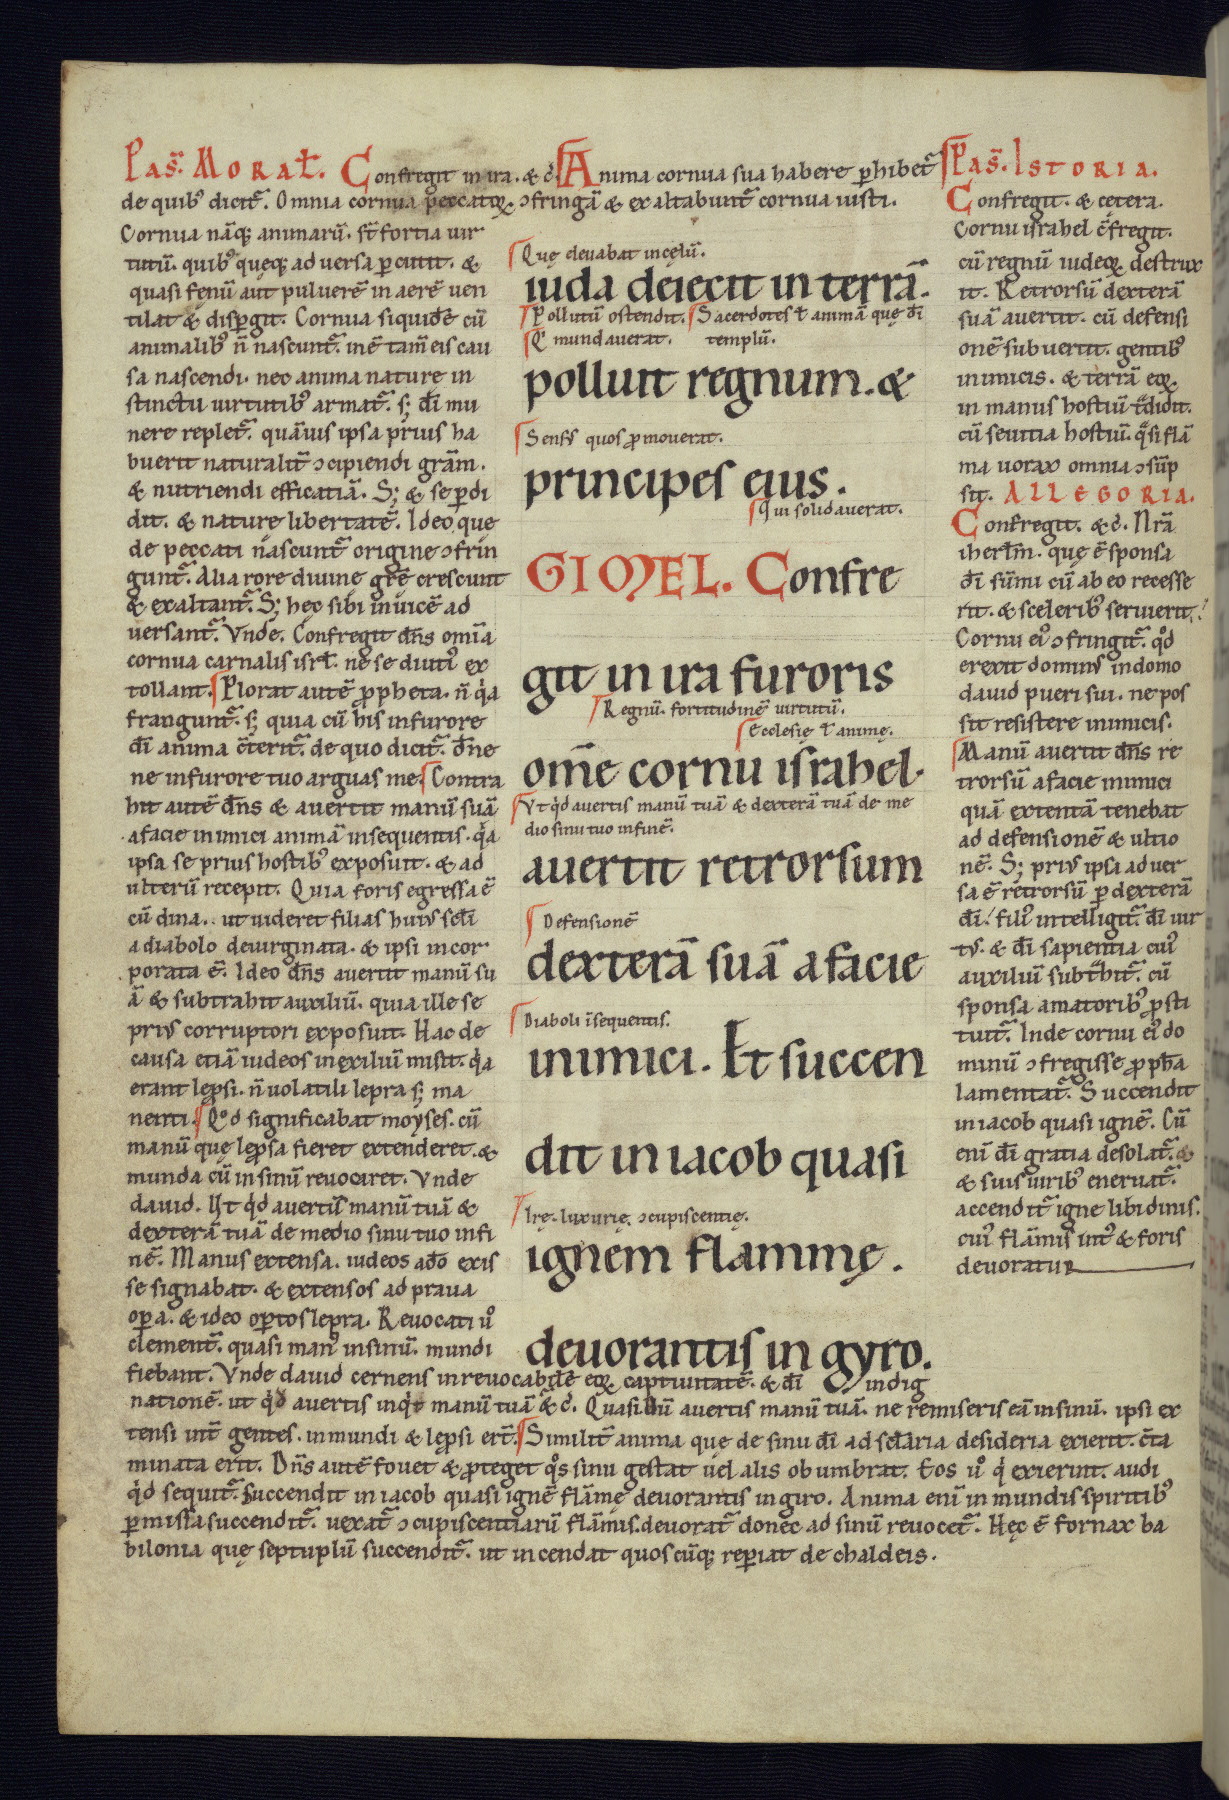 Pas̄. Moral̄. Confregit in ira. & c̄. Anima cornua sua habere ꝑhibet᷑
de quibꝰ dicit᷑. Omnia cornua peccatoꝝ ↄfringā & exaltabunt᷑ cornua iusti.
Cornua nāq; animarū. st̄ fortia uir
tutū. quibꝰ quęq; aduersa ꝑcutit. &
quasi fenū aut puluerē in aerē uen
tilat & disꝑgit. Cornua siquidē cū
animalibꝰ n̄ nascunt᷑. inē tam̄ eis cau
sa nascendi. nec anima naturę in
stinctu uirtutibꝰ armat᷑. s; dī mu
nere replet᷑. quāuis ipsa prius ha
buerit naturalit᷑ ↄcipiendi grām.
& nutriendi efficatiā. S; & se ꝑdi
dit. & naturę libertatē. Ideo quę
de peccati nascunt᷑ origine ↄfrin
gunt᷑. Alia rore diuinę grē crescunt
& exaltant᷑. S; hęc sibi inuicē ad
uersant᷑. Vnde. Confregit dn̄s om̄ia
cornua carnalis isrl̄. ne se diutiꝰ ex
tollant. Plorat autē ꝓpheta. n̄ q̇a
frangunt᷑. s; quia cū his in furore
dī anima c̄terit᷑. de quo dicit᷑. Dn̄e
ne in furore tuo arguas me. Contra
hit autē dn̄s & auertit manū suā
a facie inimici animā insequentis. q̇a
ipsa se prius hostibꝰ exposuit. & ad
ulterū recepit. Quia foris egressa ē
cū dina. ut uideret filias huiꝰ scl̄i
a diabolo deuirginata. & ipsi incor
porata ē. Ideo dn̄s auertit manū su
ā & subtrahit auxiliū. quia ille se
priꝰ corruptori exposuit. Hac de
causa etiā iudeos in exiliū misit. q̇a
erant lep̄si. n̄ uolatili lepra s; ma
nenti. Qd̄ significabat moyses. cū
manū quę lep̄sa fieret extenderet. &
munda cū in sinū reuocaret. Vnde
dauid. Ut q̇d auertis manū tuā &
dexterā tuā de medio sinu tuo in fi
nē. Manus extensa. iudeos ad̄o exis
se signabat. & extensos ad praua
oꝑa. & ideo oꝑtos lepra. Reuocati u̇
clement᷑. quasi manꝰ in sinū. mundi
fiebant. Vnde dauid cernens inreuocabilē eoꝝ captiuitatē. & dī indig
nationē. ut q̇d auertis inq̇t manū tuā & c̄. Quasi dū auertis manū tuā. ne remiseris eā in sinū. ipsi ex
tensi int̄ gentes. inmundi & lep̄si ert̄. Similit᷑ anima quę de sinu dī ad scl̄aria desideria exierit. c̄ta
minata erit. Dn̄s autē fouet & ꝓteget q̇s sinu gestat uel alis obumbrat. Eos u̇ q̇ exierint. audi
q̇d sequit᷑. Succendit in iacob quasi ignē flāmę deuorantis in giro. Anima enī inmundis spiritibꝰ
ꝑmissa succendit᷑. uexat᷑ ↄcupiscentiarū flāmis. deuorat᷑ donec ad sinū reuocet᷑. Hęc ē fornax ba
bilonia quę septuplū succendit᷑. ut incendat quoscūq; reꝑiat de chaldeis.
Quę eleuabat in cęlū.
iuda deiecit in terrā.
Pollutū ostendit. Sacerdotes l̄ animā quę dī
Q̇ mundauerat. templū.
polluit regnum. &
Sensꝰ quos ꝓmouerat.
principes eius.
Qui solidauerat.
GIMEL. Confre
git in ira furoris
Regnū. fortitudinē uirtutū.
Ecclesię l̄ animę.
om̄e cornu israhel.
Vt q̇d auertis manū tuā & dexterā tuā de me
dio sinu tuo in finē.
auertit retrorsum
Defensionē
dexterā suā a facie
Diaboli īsequentis.
inimici. Et succen
dit in iacob quasi
Irę. luxurię. ↄcupiscentię.
ignem flammę.
deuorantis in gyro.
Pas̄. Istoria.
Confregit. & cetera.
Cornu israhel c̄fregit.
cū regnū iudeoꝝ destrux
it. Retrorsū dexterā
suā auertit. cū defensi
onē subuertit. gentibꝰ
inimicis. & terrā eoꝝ
in manus hostiū t̄didit.
cū seuitia hostiū. q̄si flā
ma uorax omnia ↄsūp
sit. ALLEGORIA.
Confregit. & c̄. Nr̄a
iherl̄m. quę ē sponsa
dī sūmi cū ab eo recesse
rit. & sceleribꝰ seruierit.
Cornu eiꝰ ↄfringit᷑. qd̄
erexit dominꝰ in domo
dauid pueri sui. ne pos
sit resistere inimicis.
Manū auertit dn̄s re
trorsū a facie inimici
quā extentā tenebat
ad defensionē & ultio
nē. S; priꝰ ipsa aduer
sa ē retrorsū ꝑ dexterā
dī. filiꝰ intelligit᷑. dī uir
tꝰ. & dī sapientia cuiꝰ
auxiliū subt̄hit᷑. cū
sponsa amatoribꝰ ꝓsti
tuit᷑. Inde cornu eiꝰ do
minū ↄfregisse ꝓpha
lamentat᷑. Succendit
in iacob quasi ignē. Cū
enī dī gratia desolat᷑. &
& suis uiribꝰ eneruat᷑.
accendit᷑ igne libidinis.
cuiꝰ flāmis intꝰ & foris
deuoratur